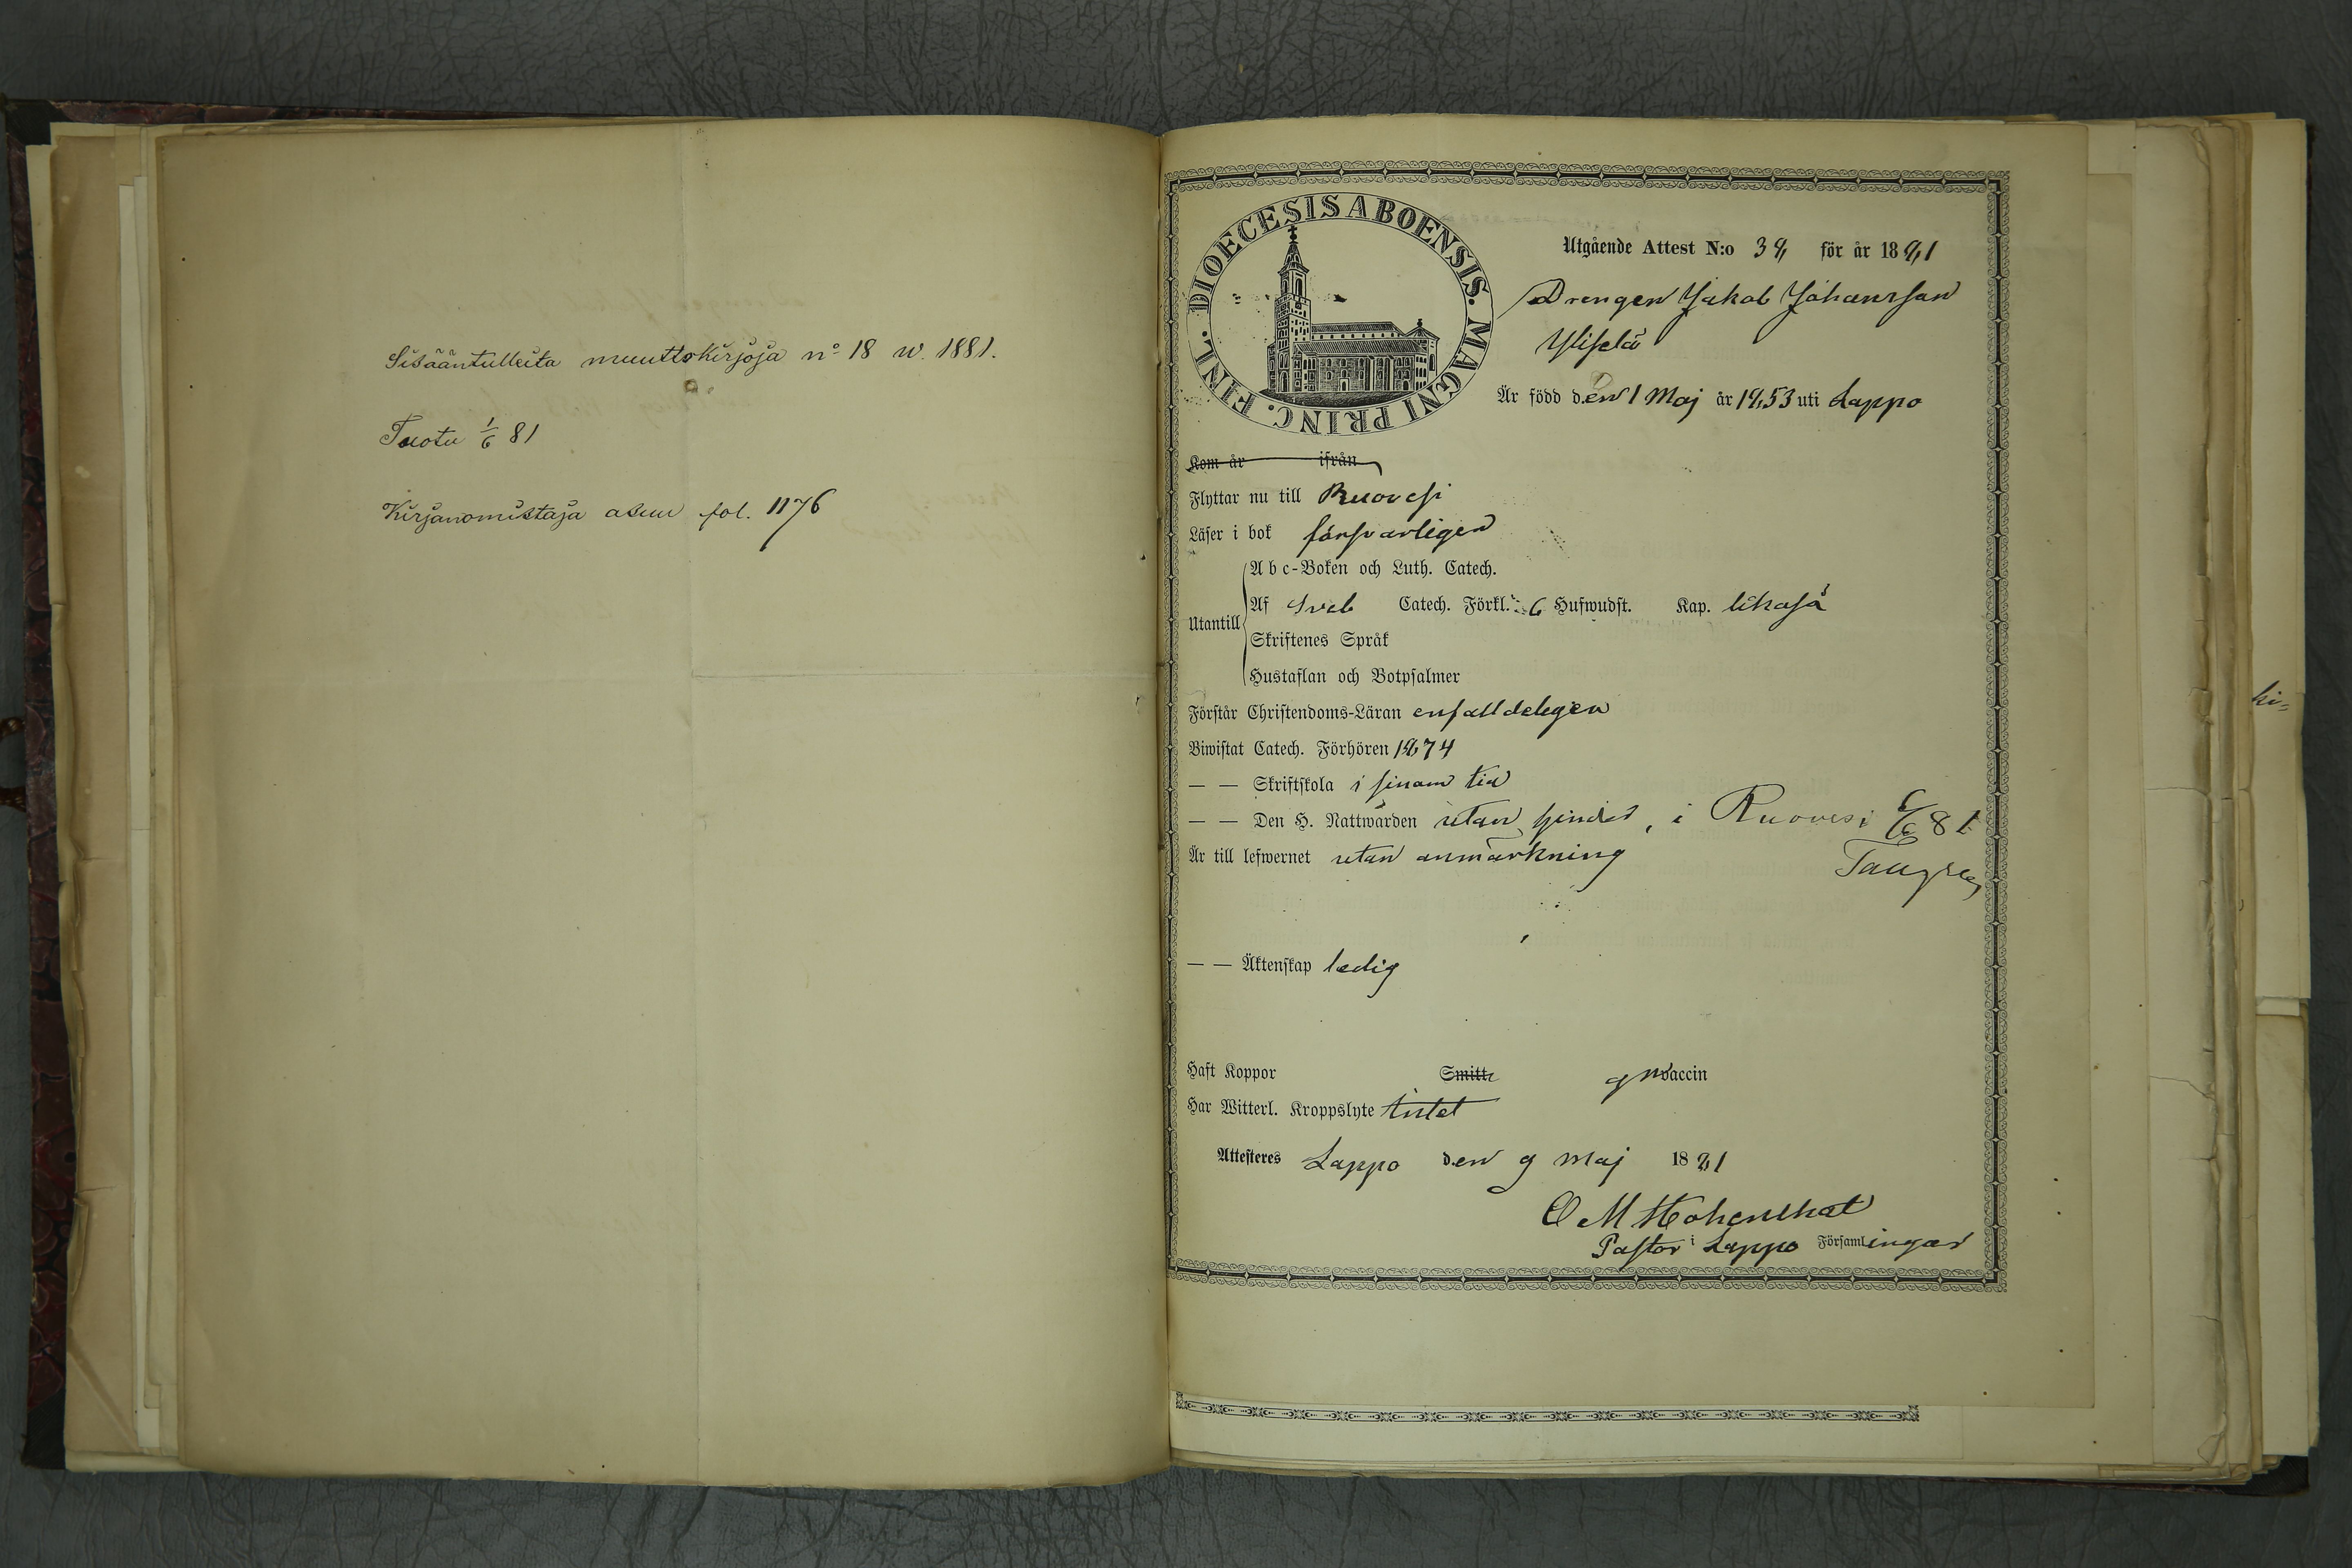 Sisääntulleita muuttokirjoja n:o 18 w. 1881.
Tuotu 1/6 81
Kirjanomistaja asuu fol. 1176
DIOECESIS ABOENSIS. MAGNI PRINC. FINL.
Utgående Attest N:o 38, för år 1881
Drengen Jakob Johansson
Yliselä
Är född den 1 Maj år 1853 uti Lappo
Kom år ifrån
Flyttar nu till Ruovesi
Läser i bok försvarligen
Abc-Boken och Luth. Catech.
Af Sveb Catech. Förkl. 6 Hufwudst. Kap. likaså
Utantill
Skriftenes Språk
Hustaflan och Botpsalmer
Förstår Christendoms-Läran enfalldeligen
Biwistat Catech. Förhören 1874
— — Skriftskola i sinom tid
— — Den H. Nattwarden utan hinder, i Ruovesi 6/6 81
Är till lefwernet utan anmärkning
— — Äktenskap ledig
Haft Koppor Smitt vaccin
Har Witterl. Kroppslyte intet
Attesteres Lappo den 9 Maj 1881
O M Hohenthal
Pastor i Lappo Församlingar
ki=